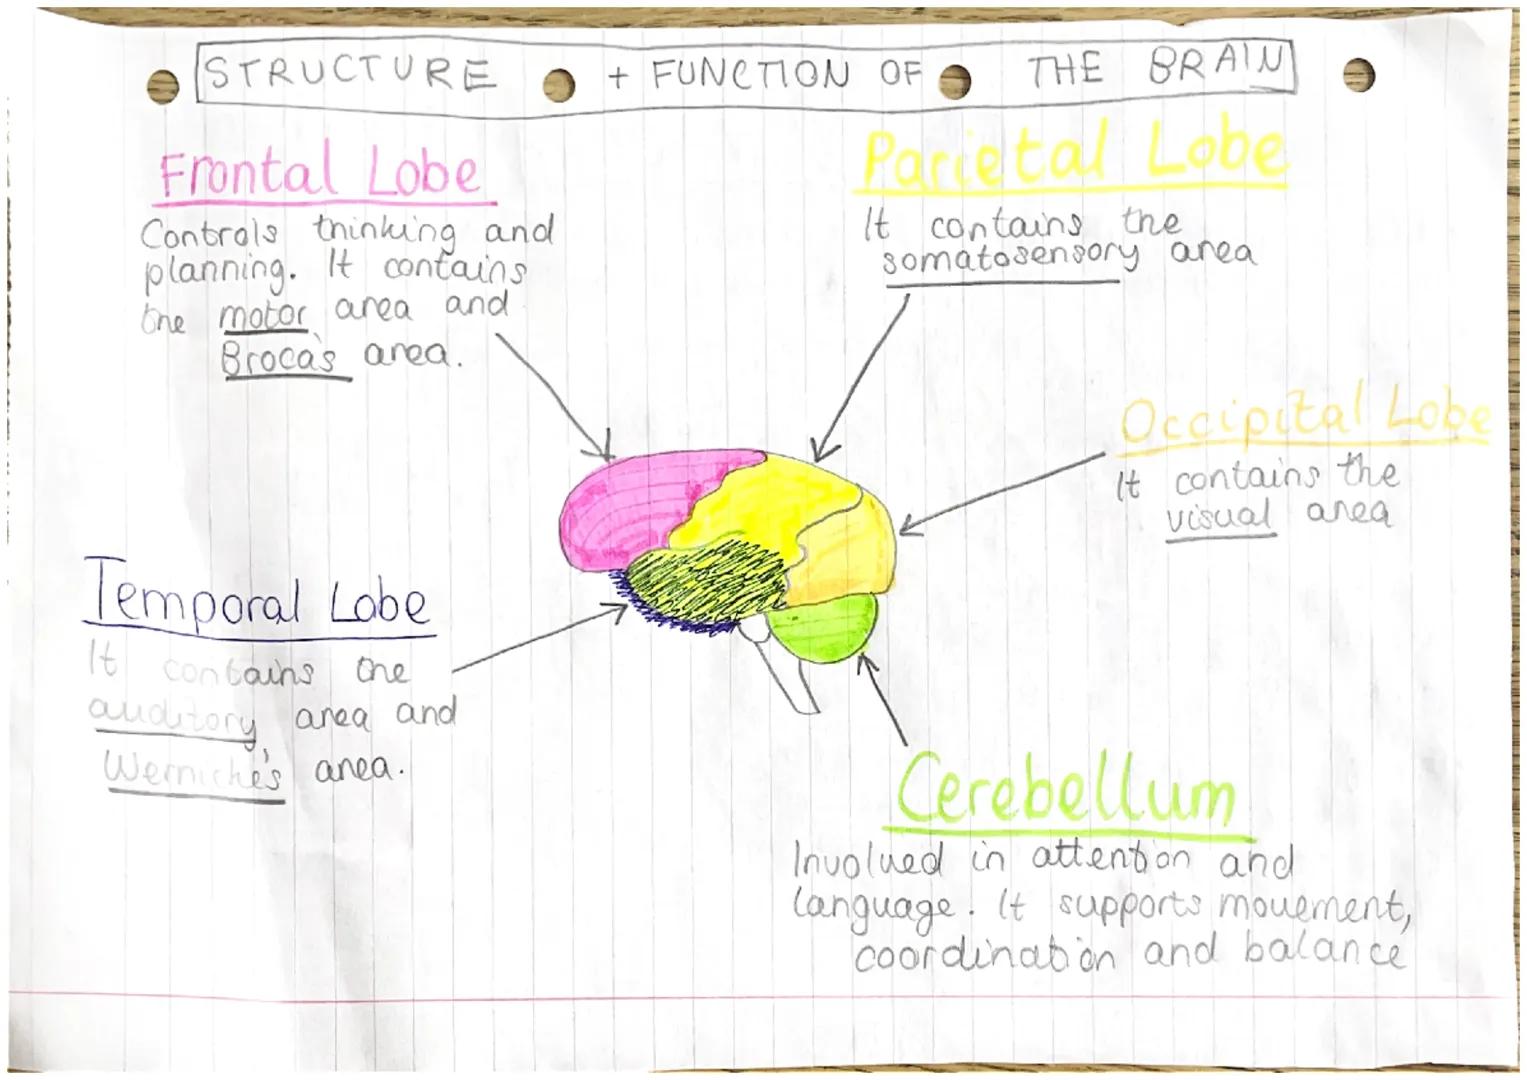 STRUCTURE + FUNCTION OF THE BRAIN
Frontal Lobe
Controls thinking and
planning. It contains
the motor area and
Broca's area.
Parietal Lobe
It contains the
somatosensory area
Occipital Lobe
It contains the
visual area
Temporal Lobe
It contains the
auditory area and
Wernicke's area.
Cerebellum
Involved in attention and
language. It supports movement,
coordination and balance